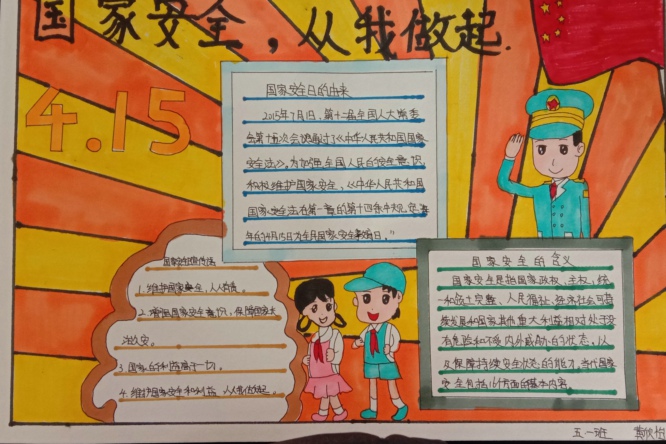 国家安全，从我做起.
4.15
国家安全日的由来
2015年7月1日，第十二届全国人大常委
会第十五次会议通过了《中华人民共和国国家
安全法》。为加强全国人民的安全意识
和积极维护国家安全，《中华人民共和国
国家安全法在第一章的第十四条中规定每
年的4月15日为全民国家安全教育日。”
国家安全宣传语
1.维护国家安全，人人有责。
2.增强国家安全意识，保障国家长
治久安。
3.国家的利益高于一切。
4.维护国家安全和利益，人人有责做起。
国家安全的含义
国家安全是指国家政权、主权、统
一和领土完整、人民福祉、经济社会可持
续发展和国家其他重大利益相对处于没
有危险和不受内外威胁的状态，以
及保障持续安全状态的能力，当代国家
安全包括16个方面的基本内容
五一班